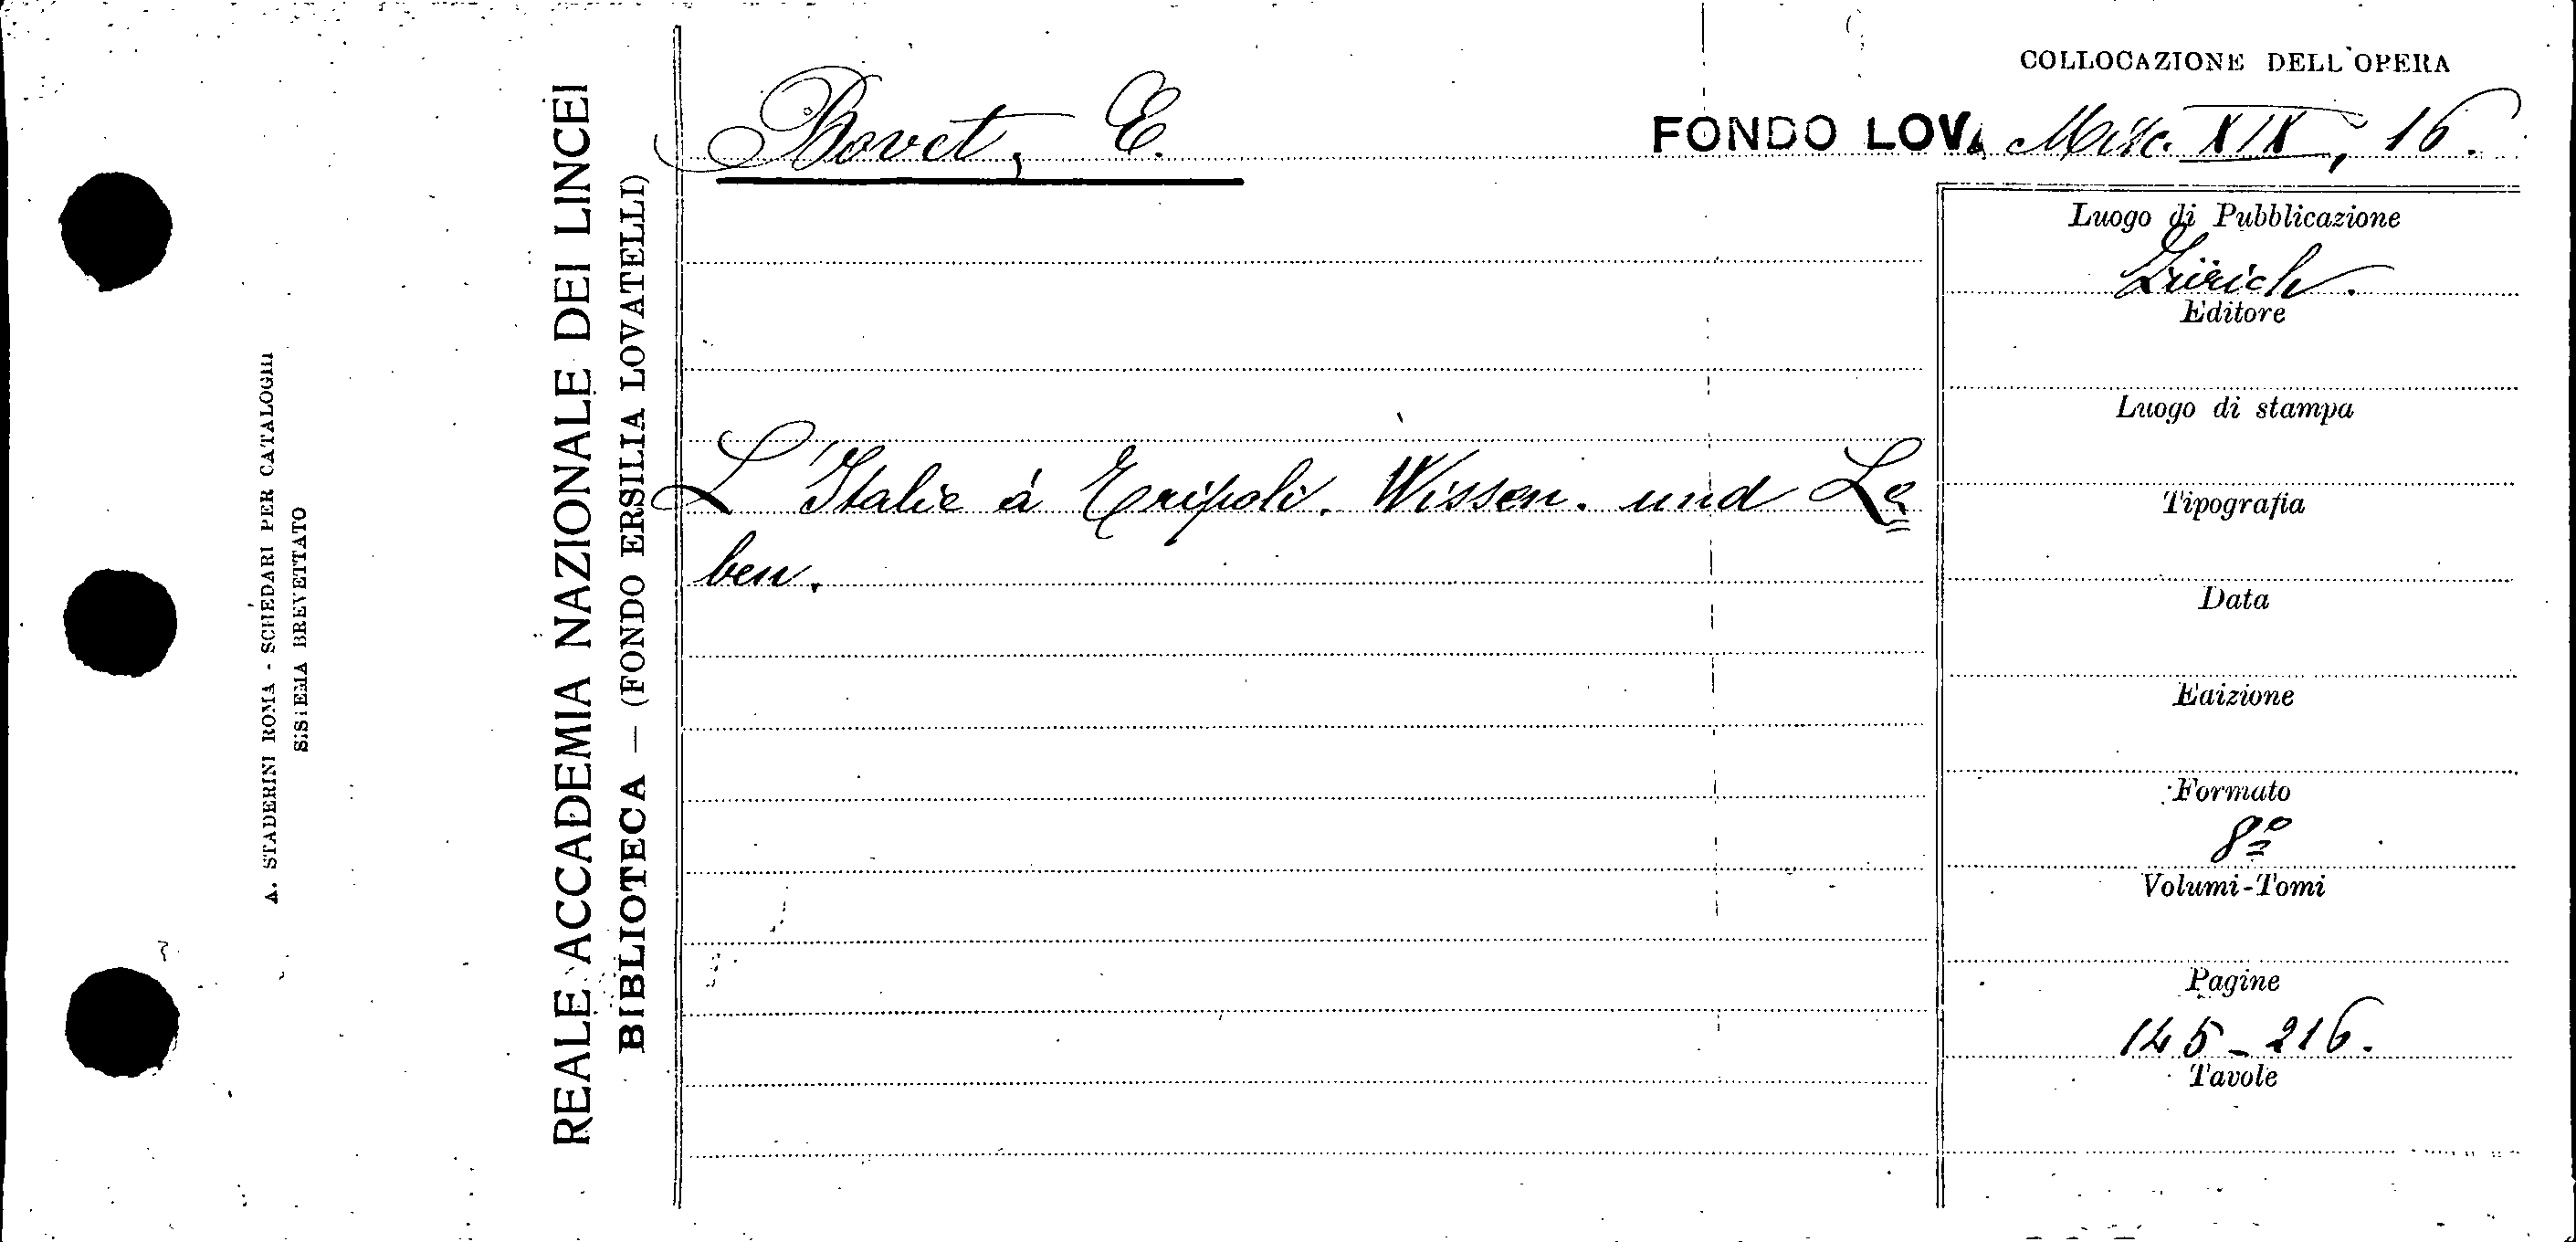 COLLOCAZIONE DELL'OPERA
Bovet, E.
FONDO LOV. Misc. XIX, 16.
L'Italie à Tripoli. Wissen. und Le=
ben.
Luogo di Pubblicazione
Zürich.
Editore
Luogo di stampa
Tipografia
Data
Edizione
Formato
8º
Volumi-Tomi
Pagine
145-216.
Tavole
REALE ACCADEMIA NAZIONALE DEI LINCEI
BIBLIOTECA — (FONDO ERSILIA LOVATELLI)
A. STADERINI ROMA - SCHEDARI PER CATALOGHI
SISTEMA BREVETTATO